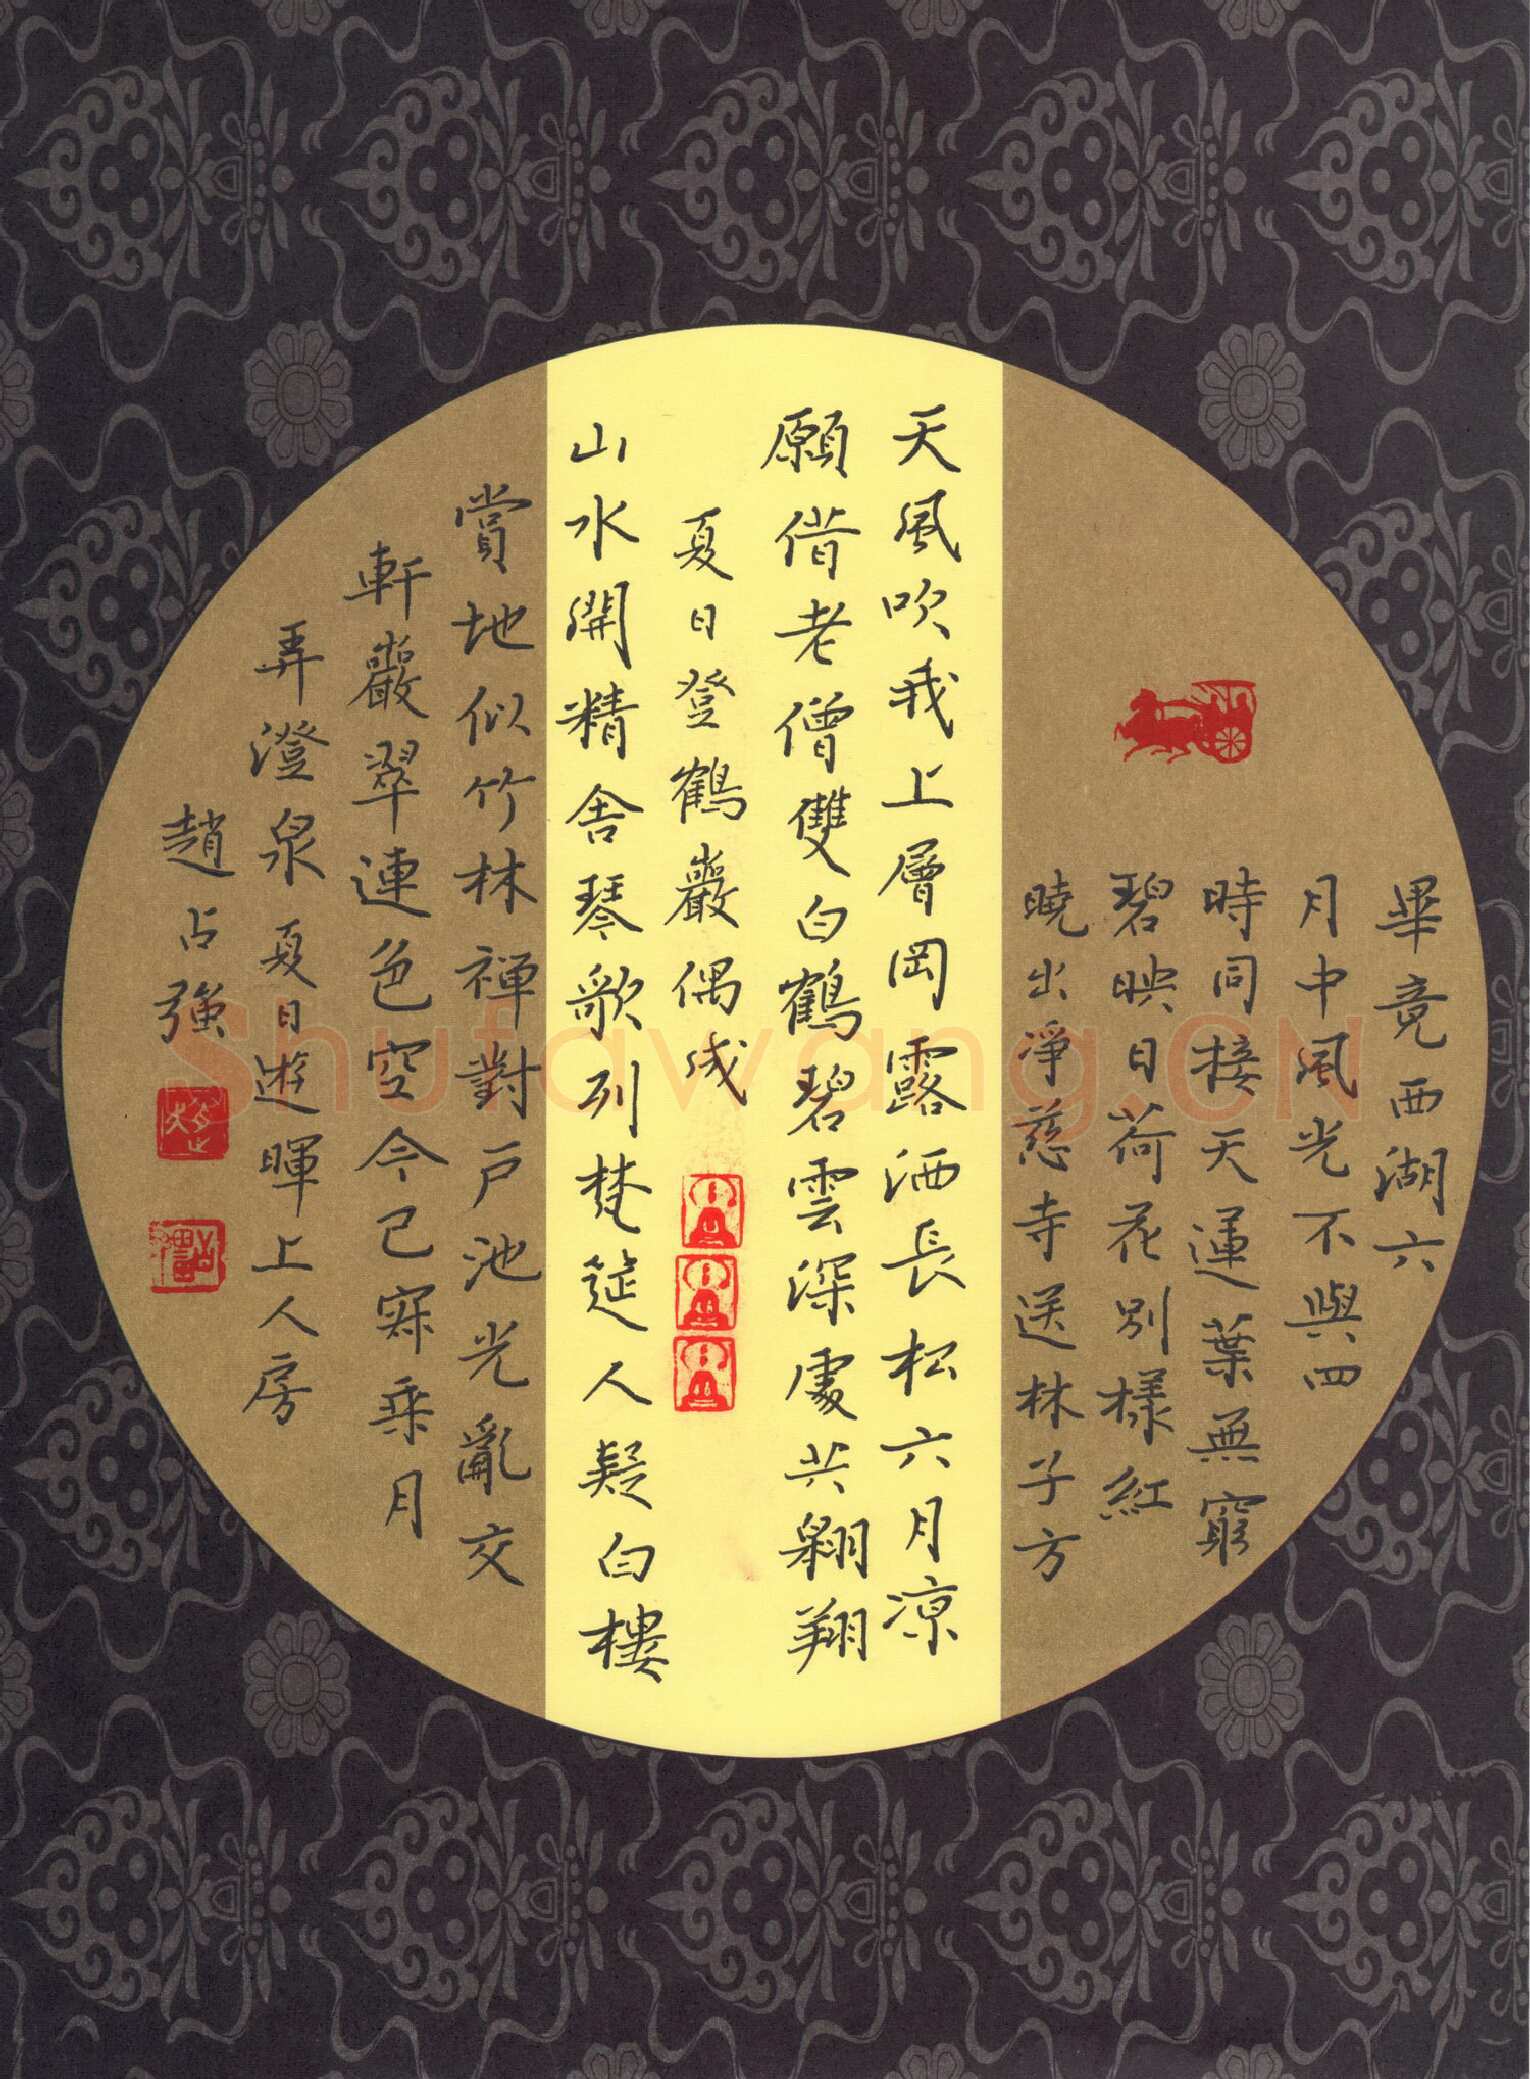 畢竟西湖六
月中風光不與四
時同接天蓮葉無窮
碧映日荷花別樣紅
曉出淨慈寺送林子方
天風吹我上層岡露洒長松六月凉
願借老僧雙白鶴碧雲深處共翱翔
夏日登鶴巖偶成
山水開精舍琴歌列梵筵人疑白樓
賞地似竹林禪對戶池光亂交
軒巖翠連色空今已寂乘月
弄澄泉夏日遊暉上人房
趙占強
Shufawang.CN